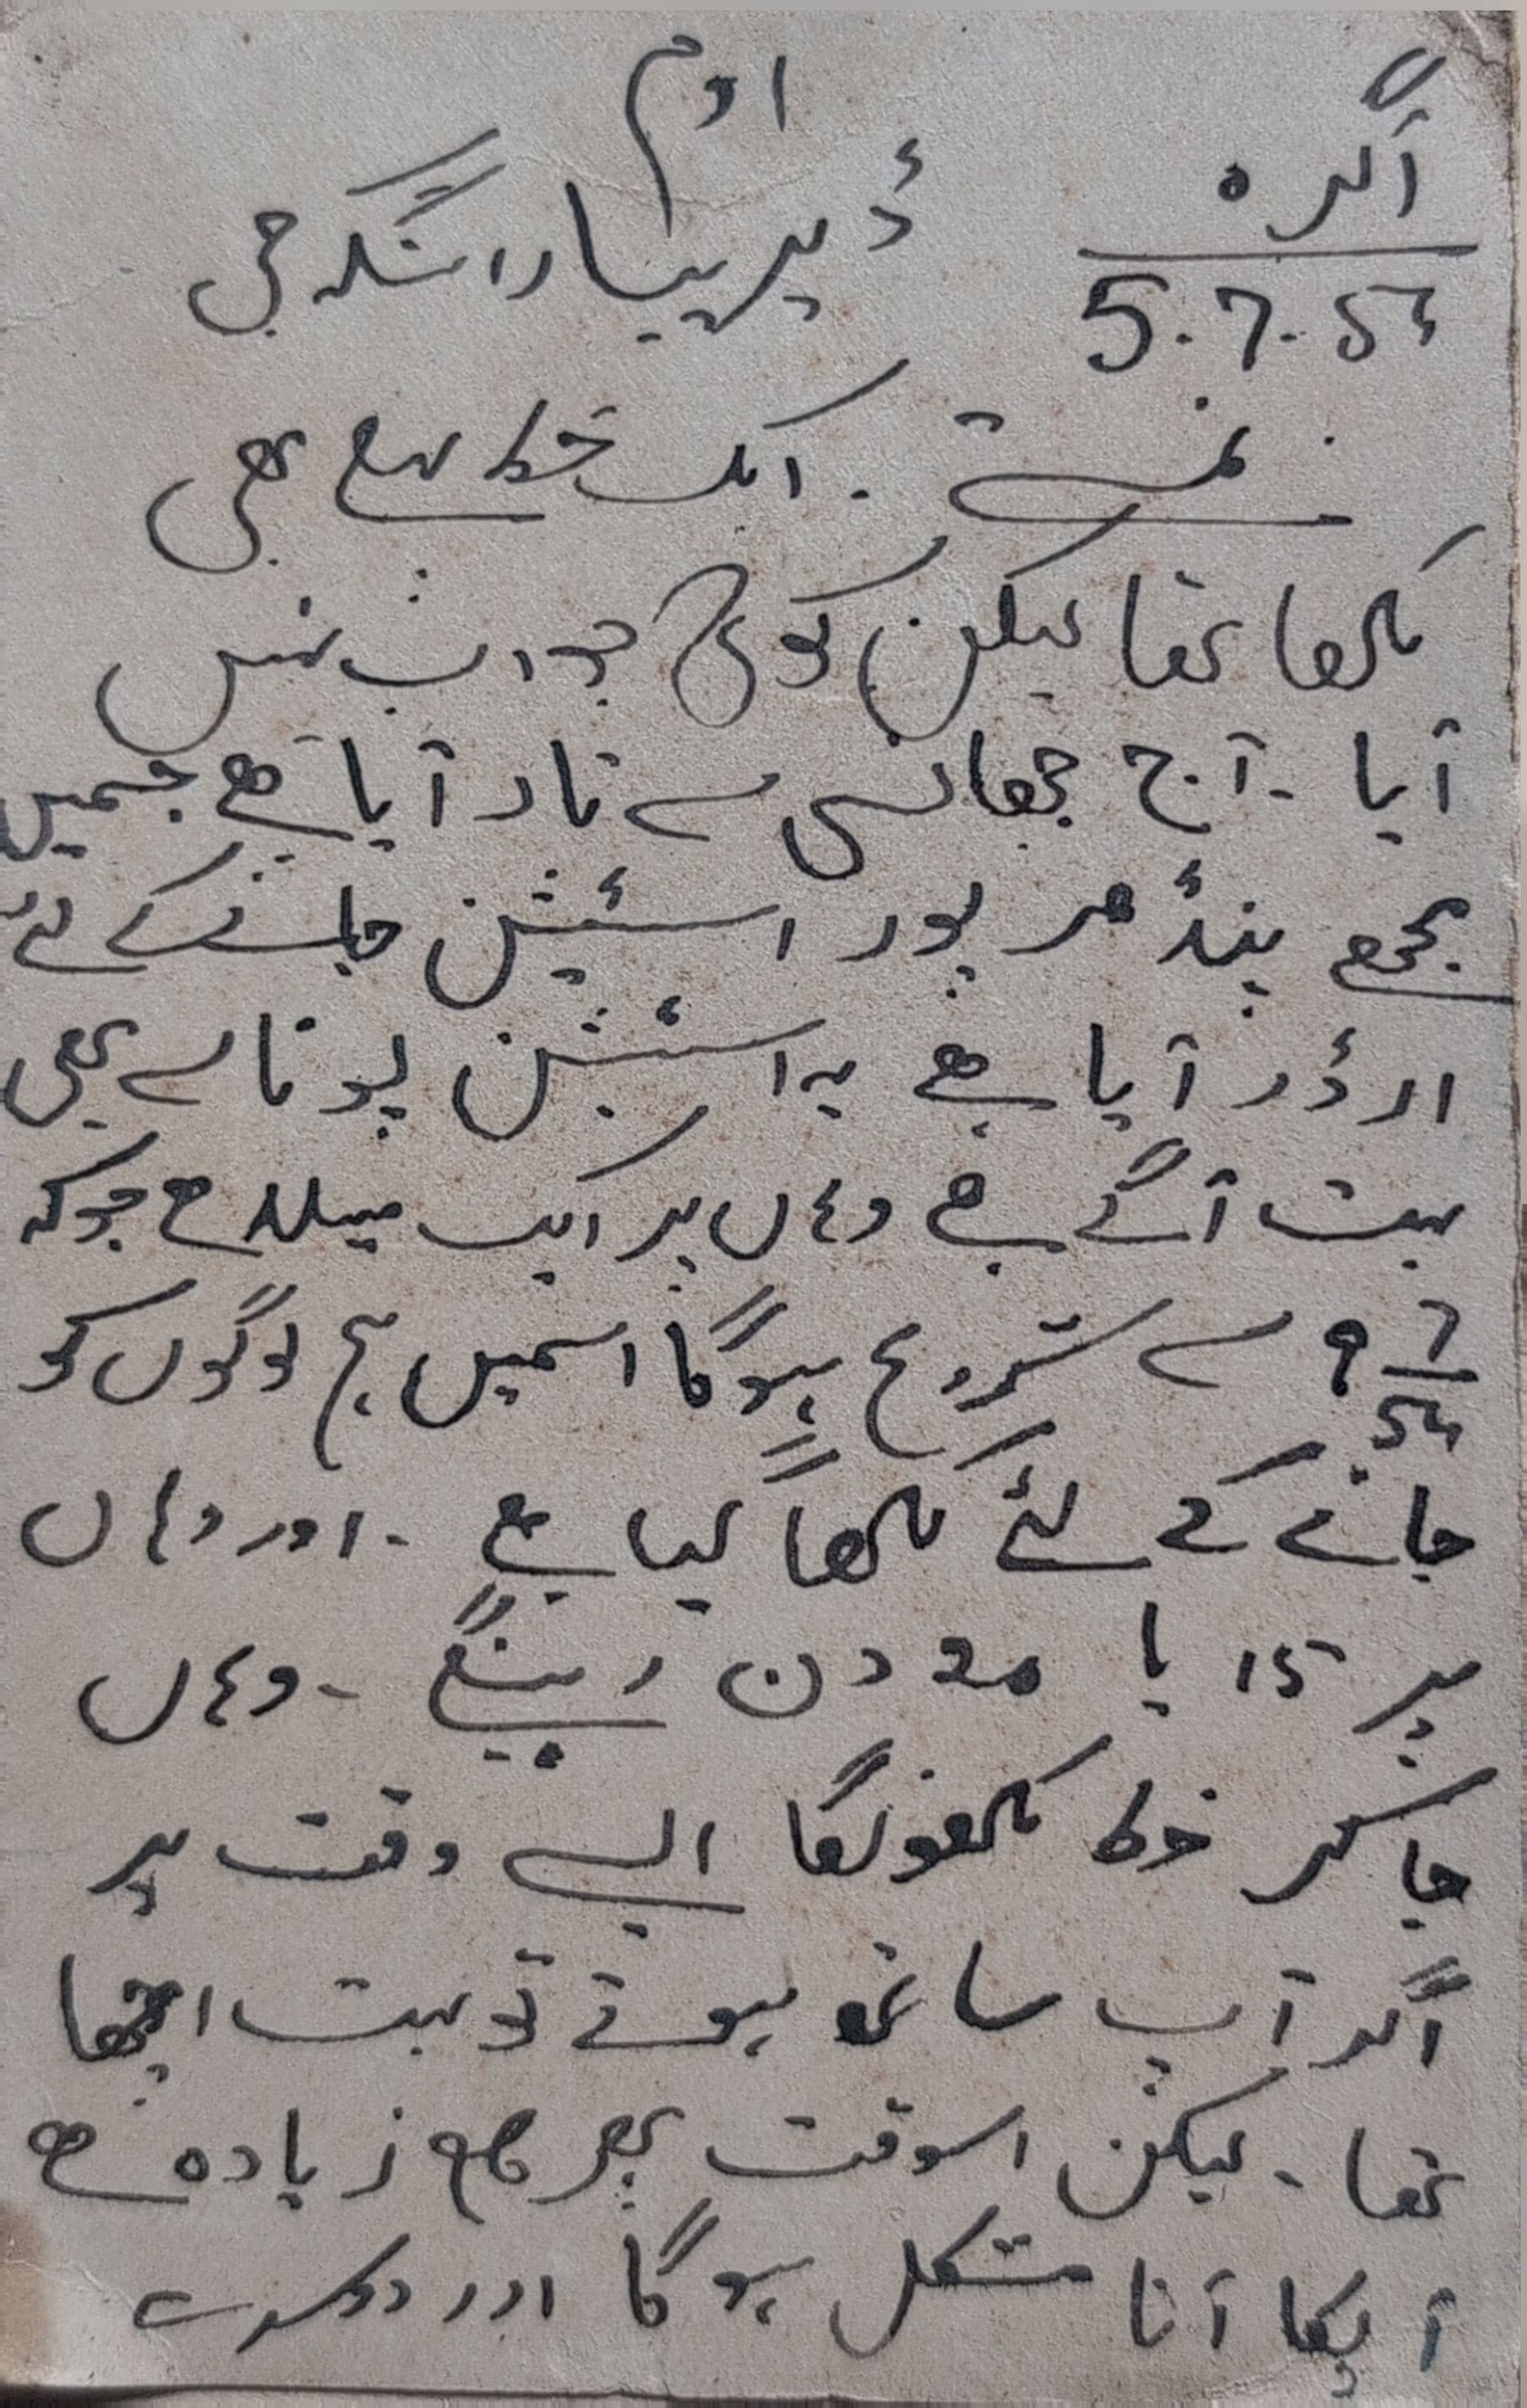 اوم
آگرہ
5.7.54
ڈیر پیارا سنگھ جی
نمستے . ایک خط پہلے بھی
لکھا تھا لیکن کوئی جواب نہیں
آیا - آج جھانسی سے تار آیا ہے جسمیں
مجھے پنڈھر پور اسٹیشن جانے کے لئے
ارڈر آیا ہے یہ اسٹیشن پونا سے بھی
بہت آگے ہے وہاں پر ایک میلہ ہے جوکہ
9 7/54 سے شروع ہوگا اسمیں ہم لوگوں کو
جانے کے لئے لکھا گیا ہے - اور وہاں
پر 15 یا 20 دن رہینگے - وہاں
جاکر خط لکھونگا ایسے وقت پر
اگر آپ ساتھ ہوتے تو بہت اچھا
تھا - لیکن اسوقت پھر کام زیادہ ہے
آپکا آنا مشکل ہوگا اور دوسرے